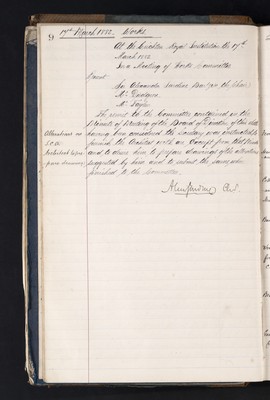 9 17th March 1882. Works
At the Crichton Royal Institution the 17th
March 1882
In a Meeting of Works Committee
Present
Sir Alexander Jardine Bart (in the Chair)
Mr
Mr Taylor
The remit to the Committee contained in the
Minute of Meeting of the Board of of this date
having been considered the Secretary was instructed to
furnish the with an Excerpt from that Minute
and to desire him to prepare drawings of the alterations
suggested by him and to submit the same when
finished to the Committee.
Alterations on
S.C.A.
to pre-
pare drawings